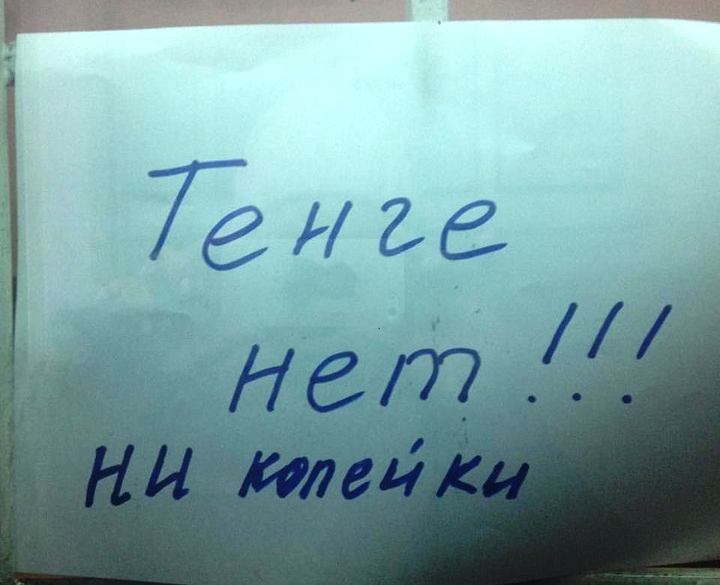 Тенге
нет!!!
ни копейки